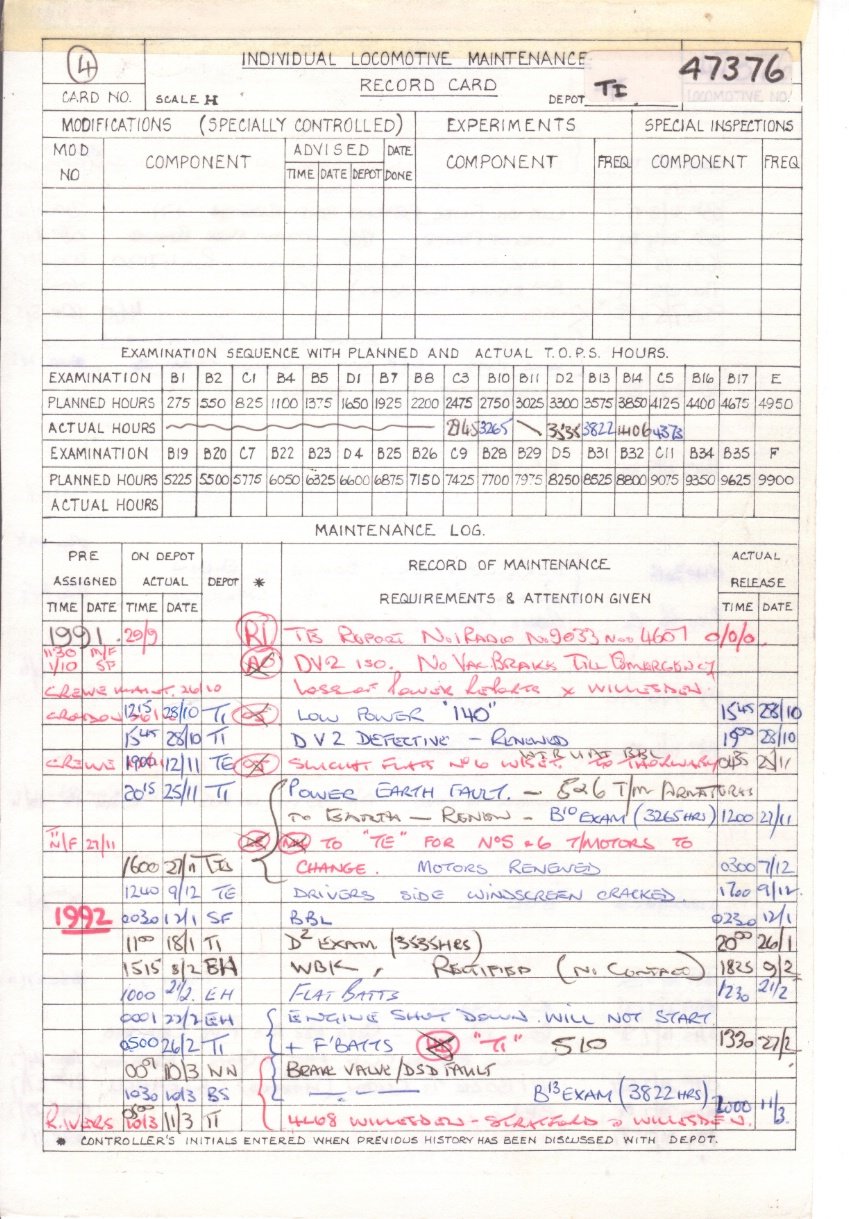 4
INDIVIDUAL LOCOMOTIVE MAINTENANCE
RECORD CARD
47376
CARD NO. SCALE H DEPOT TI LOCOMOTIVE NO.
MODIFICATIONS (SPECIALLY CONTROLLED) EXPERIMENTS SPECIAL INSPECTIONS
MOD NO COMPONENT ADVISED DATE DONE COMPONENT FREQ COMPONENT FREQ
TIME DATE DEPOT
EXAMINATION SEQUENCE WITH PLANNED AND ACTUAL T.O.P.S. HOURS.
EXAMINATION B1 B2 C1 B4 B5 D1 B7 B8 C3 B10 B11 D2 B13 B14 C5 B16 B17 E
PLANNED HOURS 275 550 825 1100 1375 1650 1925 2200 2475 2750 3025 3300 3575 3850 4125 4400 4675 4950
ACTUAL HOURS 3265 3535 3822 4373
EXAMINATION B19 B20 C7 B22 B23 D4 B25 B26 C9 B28 B29 D5 B31 B32 C11 B34 B35 F
PLANNED HOURS 5225 5500 5775 6050 6325 6600 6875 7150 7425 7700 7975 8250 8525 8800 9075 9350 9625 9900
ACTUAL HOURS
MAINTENANCE LOG.
PRE ASSIGNED ON DEPOT ACTUAL DEPOT * RECORD OF MAINTENANCE REQUIREMENTS & ATTENTION GIVEN ACTUAL RELEASE
TIME DATE TIME DATE TIME DATE
1991 29/9 RI TIS REPORT No1 RADIO No 9033 4607 0/0/0
1130 M/F 1/10 SF DV2 ISO. NO VAC BRAKE TILL EMERGENCY
CREWE 26/10 LOSS OF POWER REPORTS X WILLESDEN.
CROYDON 1215 28/10 TI LOW POWER "140" 1545 28/10
1545 28/10 TI DV2 DEFECTIVE - RENEWED 1900 28/10
CREWE 12/11 TE SLIGHT FLATS No 6 BBL TO THORNABY 0435
2015 25/11 TI POWER EARTH FAULT. - 5 & 6 T/M ARMATURES
TO EARTH - RENEW - B10 EXAM (3265 HRS) 1200 27/11
TI N/F 27/11 TO "TE" FOR Nos 5 & 6 T/MOTORS TO
1600 27/11 CHANGE. MOTORS RENEWED 0300 7/12
1240 9/12 TE DRIVERS SIDE WINDSCREEN CRACKED. 1700 9/12
1992 0030 12/1 SF BBL 0230 12/1
1100 18/1 TI D2 EXAM (3535 HRS) 2000 26/1
1515 8/2 BH WBK, RECTIFIED (No CONTACT) 1825 9/2
1000 21/2. EH FLAT BATTS 1230 21/2
0001 22/2 EH ENGINE SHUT DOWN. WILL NOT START
0500 26/2 TI + F'BATTS "TI" 510 1330 27/2
10/3 NN BRAKE VALVE/DSD FAULT
1030 10/3 BS B13 EXAM (3822 HRS) 2000 11/3
R. WBRS 0500 10/3 11/3 TI 4468 WILLESDEN - STRATFORD WILLESDEN.
* CONTROLLER'S INITIALS ENTERED WHEN PREVIOUS HISTORY HAS BEEN DISCUSSED WITH DEPOT.